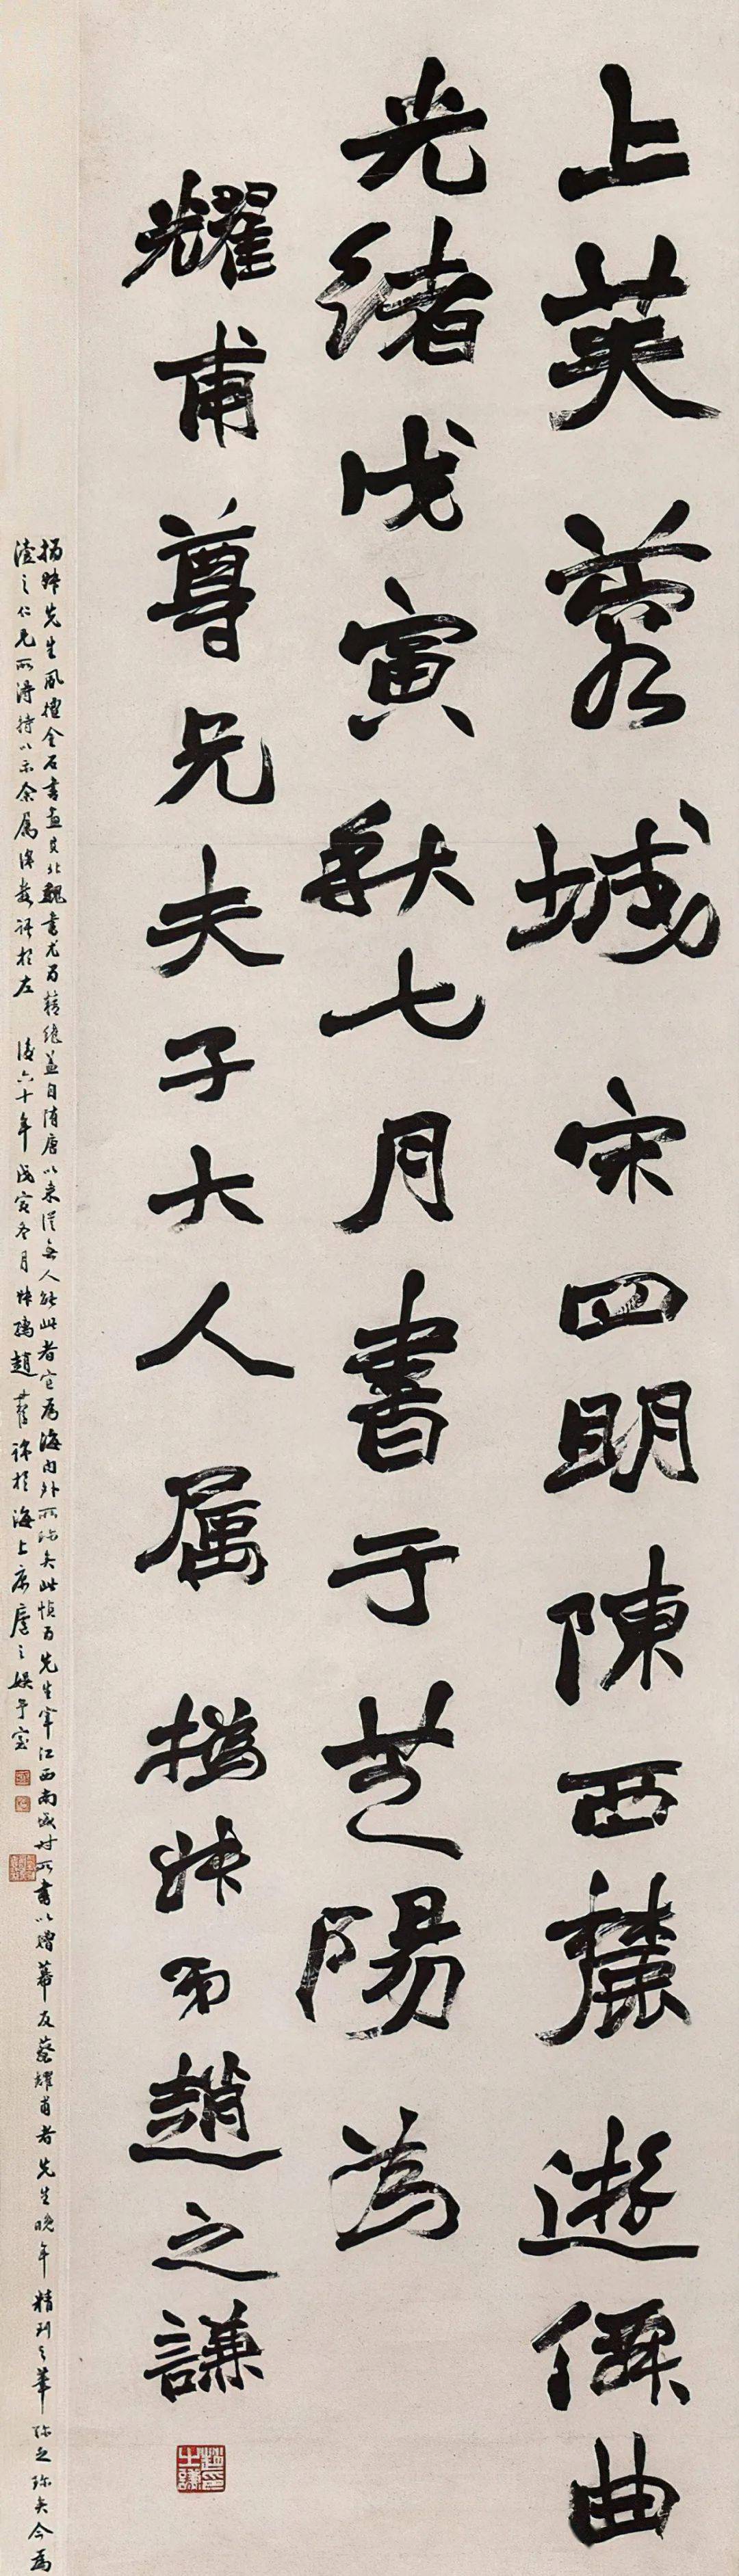 上芙蓉城 宋四明陳西麓遊僊曲
光緒戊寅秋七月書于芝陽為
耀甫尊兄夫子大人属 撝叔弟趙之謙
趙印之謙
撝叔先生風擅金石書畫其北魏書尤為精絕蓋自隋唐以來從無人能此者宜為海內外所珍矣此幀為先生宰江西南城時所書以贈幕友蔡耀甫者先生晚年精到之筆珍之珍矣今為
之仁兄所得持以示余属綴數語於左 後六十年戊寅冬月叔孺趙於海上康廬之娱予室